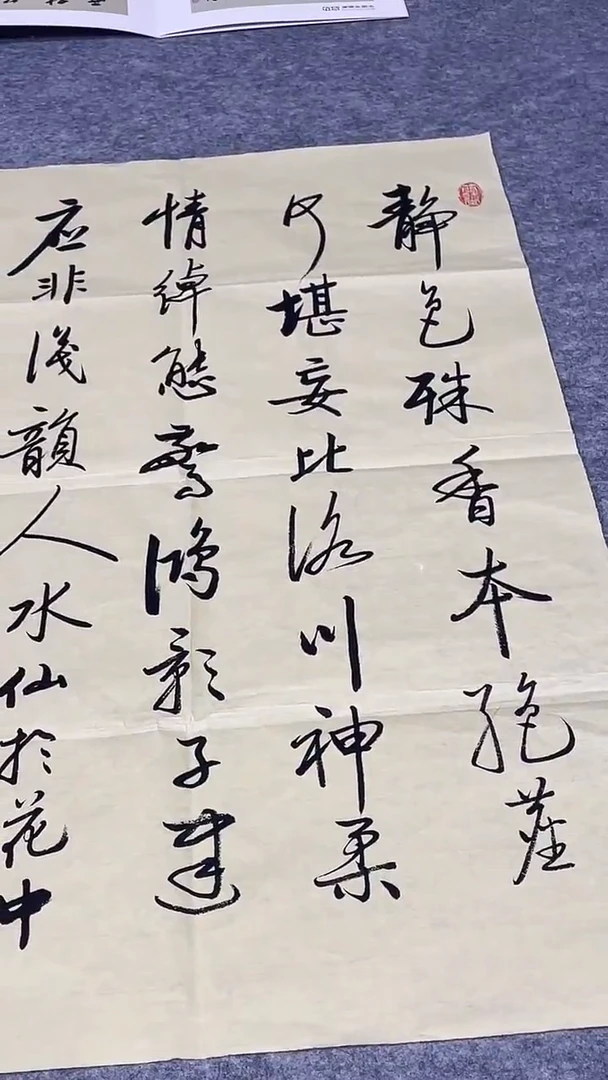 静色殊香本絶塵
何堪妄比洛川神柔
情綽態驚鴻影子建
应非淺韻人水仙於花中